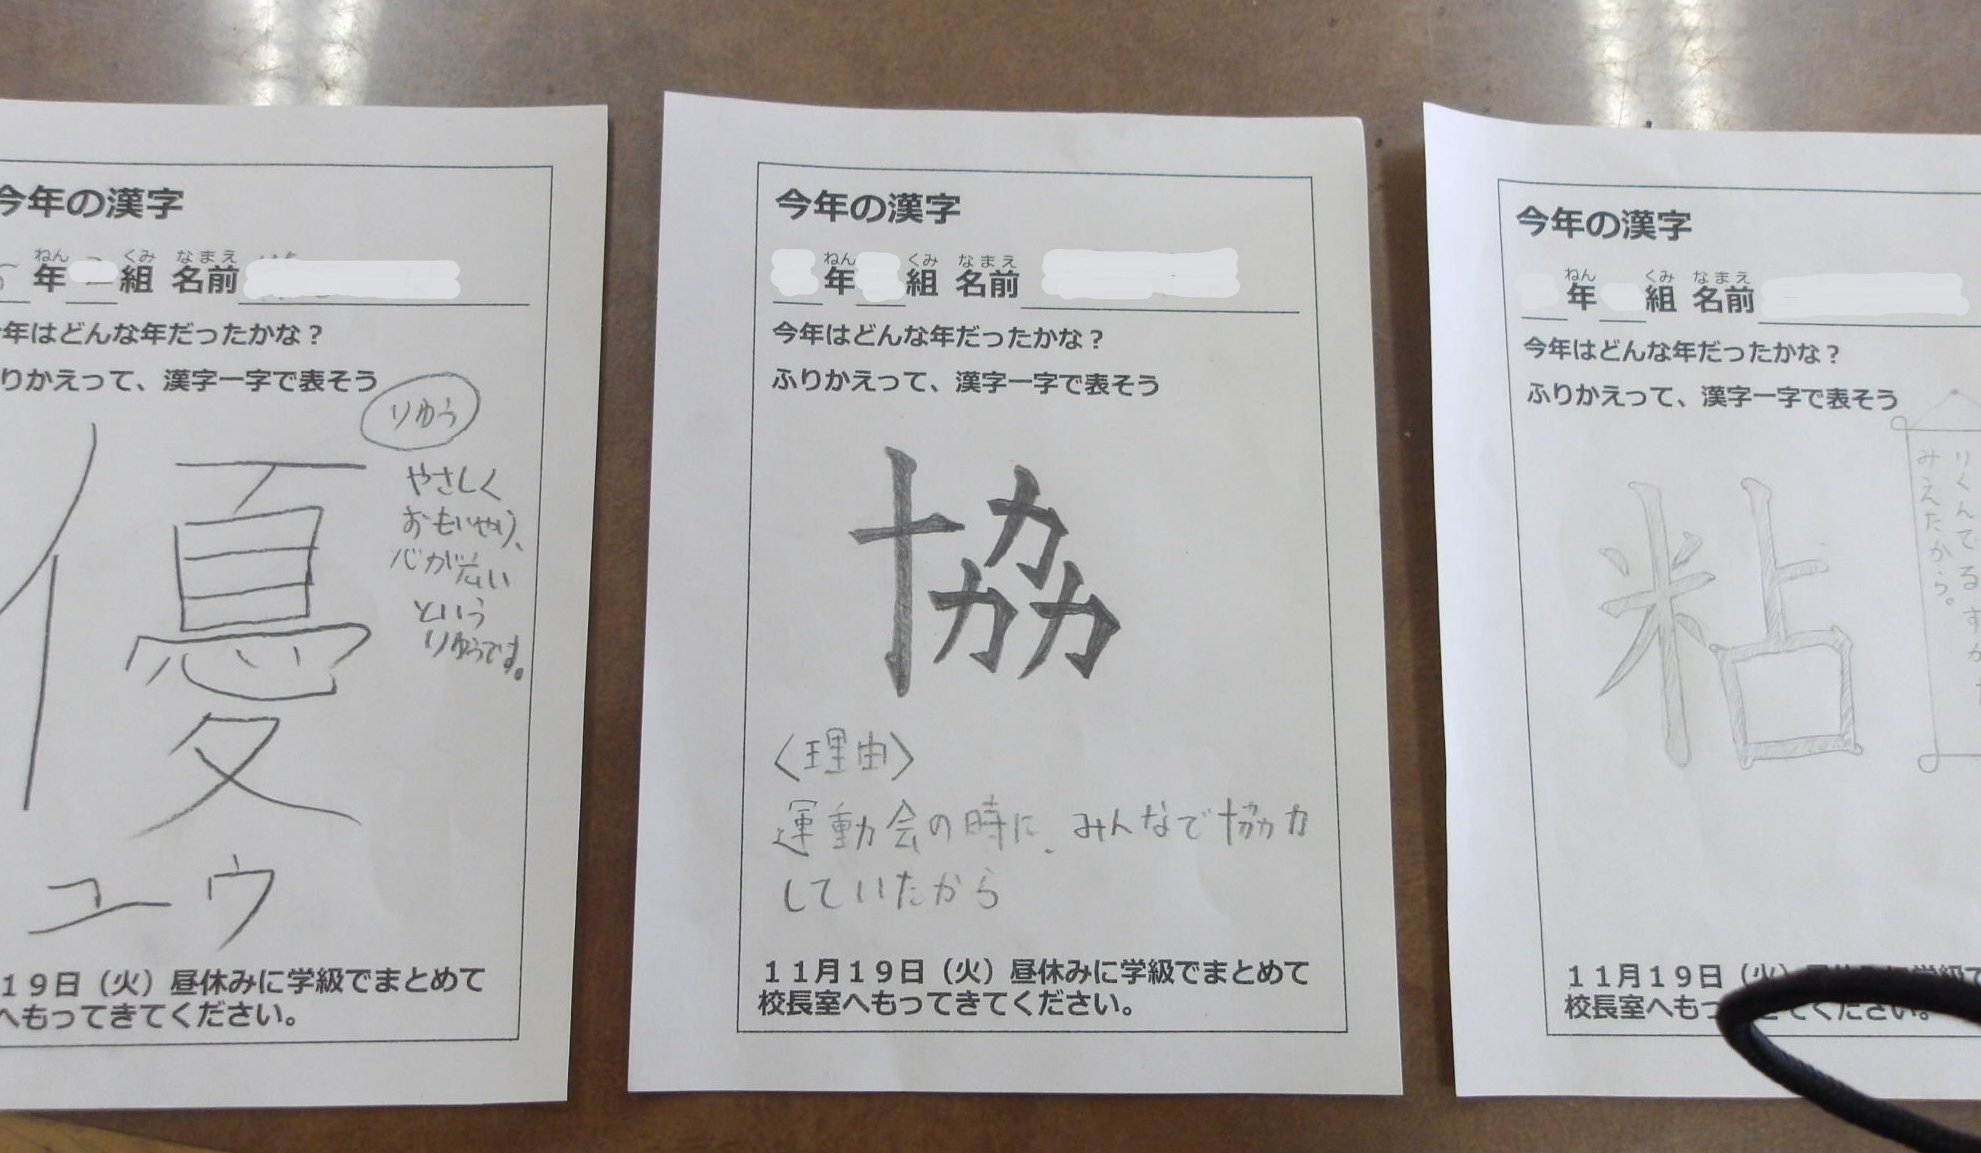 今年の漢字
ねん くみ なまえ
年 組 名前
年はどんな年だったかな？
りかえって、漢字一字で表そう
りゆう
優
やさしく
おもいやり、
心が広い
という
りゆうです。
ユウ
19日（火）昼休みに学級でまとめて
へもってきてください。
今年の漢字
ねん くみ なまえ
年 組 名前
今年はどんな年だったかな？
ふりかえって、漢字一字で表そう
協
〈理由〉
運動会の時に、みんなで協力
していたから
１１月１９日（火）昼休みに学級でまとめて
校長室へもってきてください。
今年の漢字
ねん くみ なまえ
年 組 名前
今年はどんな年だったかな？
ふりかえって、漢字一字で表そう
粘
りくんでるすが
みえたから。
１１月１９日（火）昼休みに学級で
校長室へもってきてください。